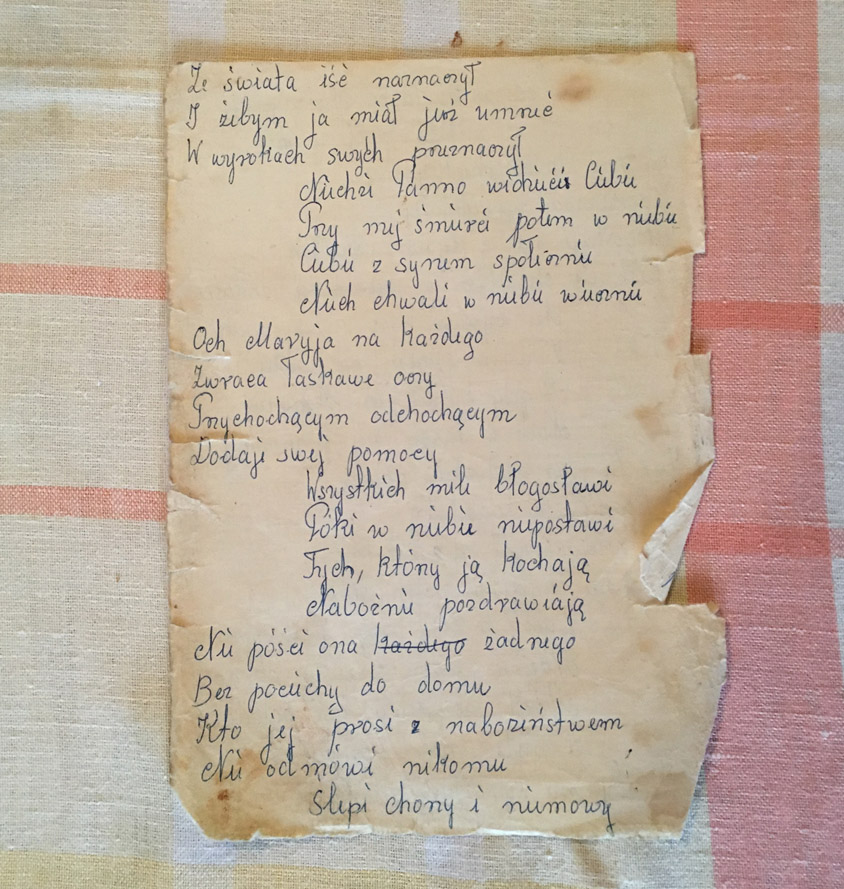 Ze świata iść naznaczył
I żebym ja miał już umrzeć
W wyrokach swych przeznaczył
Niechże Panno wichieći Ciebie
Przy mej śmierci potem w niebie
Ciebie z synem społecznie
Niech chwali w niebie wiecznie
Och Maryja na każdego
Zwraca łaskawe oczy
Przychochącym odchochącym
Dodaje swej pomocy
Wszystkich mile błogosławi
Póki w niebie niepostawi
Tych, który ją kochają
Nabożnie pozdrawiają
Nie póści ona każdego żadnego
Bez pociechy do domu
Kto jej prosi z nabożeństwem
Nie odmówi nikomu
Ślepi chony i niemowy